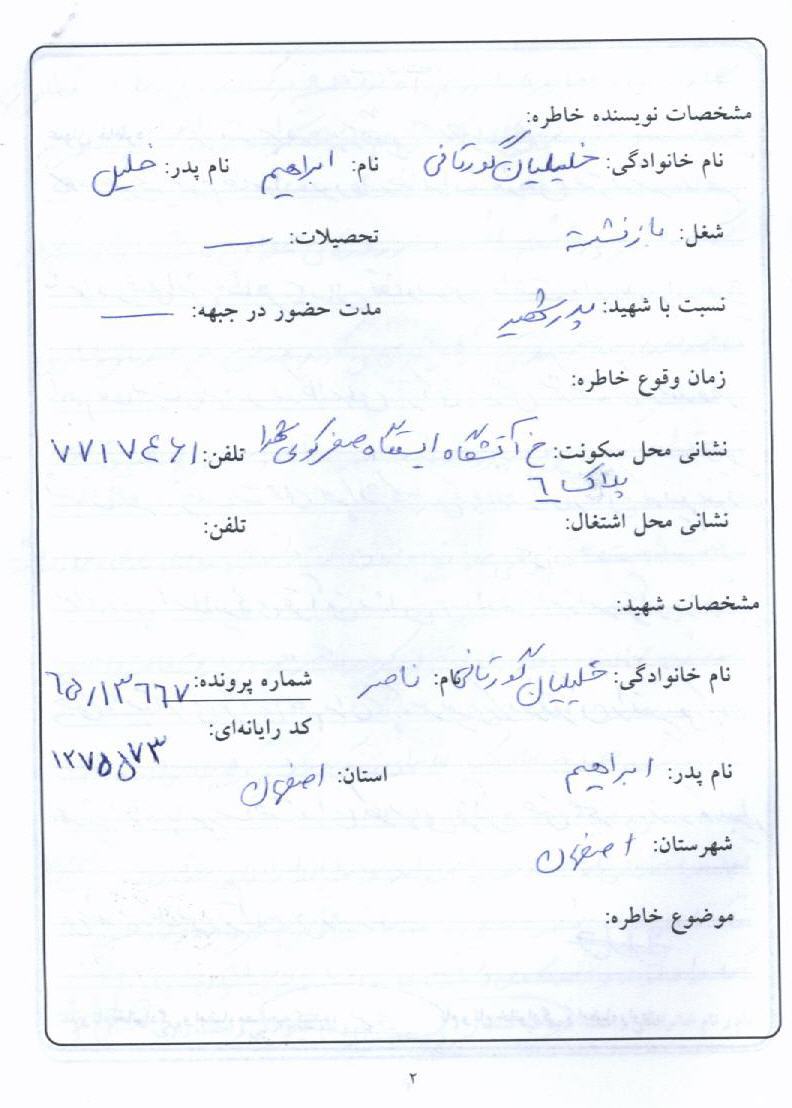 مشخصات نویسنده خاطره:
نام خانوادگی: خلیلیان گورتانی نام: ابراهیم نام پدر: خلیل
شغل: بازنشسته تحصیلات: ــــ
نسبت با شهید: پدر شهید مدت حضور در جبهه: ــــ
زمان وقوع خاطره:
نشانی محل سکونت: خ آتشگاه ایستگاه صفر کوی شهدا تلفن: ۷۷۱۷۴۶۱
پلاک ۶
نشانی محل اشتغال: تلفن:
مشخصات شهید:
نام خانوادگی: خلیلیان گورتانی نام: ناصر شماره پرونده: ۶۵/۱۳۶۶۷
کد رایانه‌ای:
نام پدر: ابراهیم استان: اصفهان ۱۲۷۵۵۷۳
شهرستان: اصفهان
موضوع خاطره:
۲